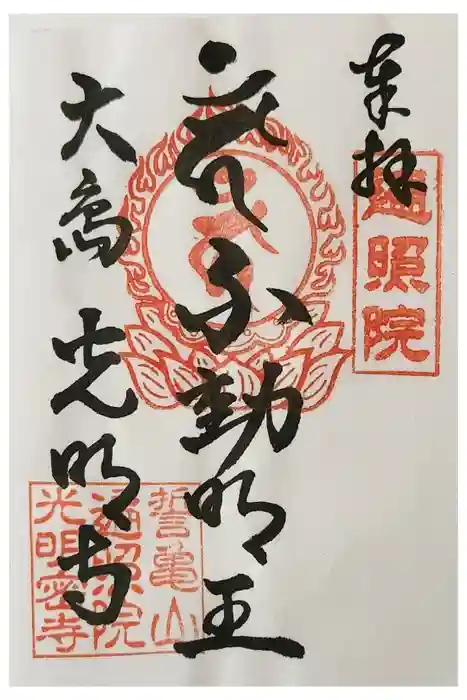 奉拝
遍照院
不動明王
大島 光明寺
誓亀山
遍照院
光明密寺